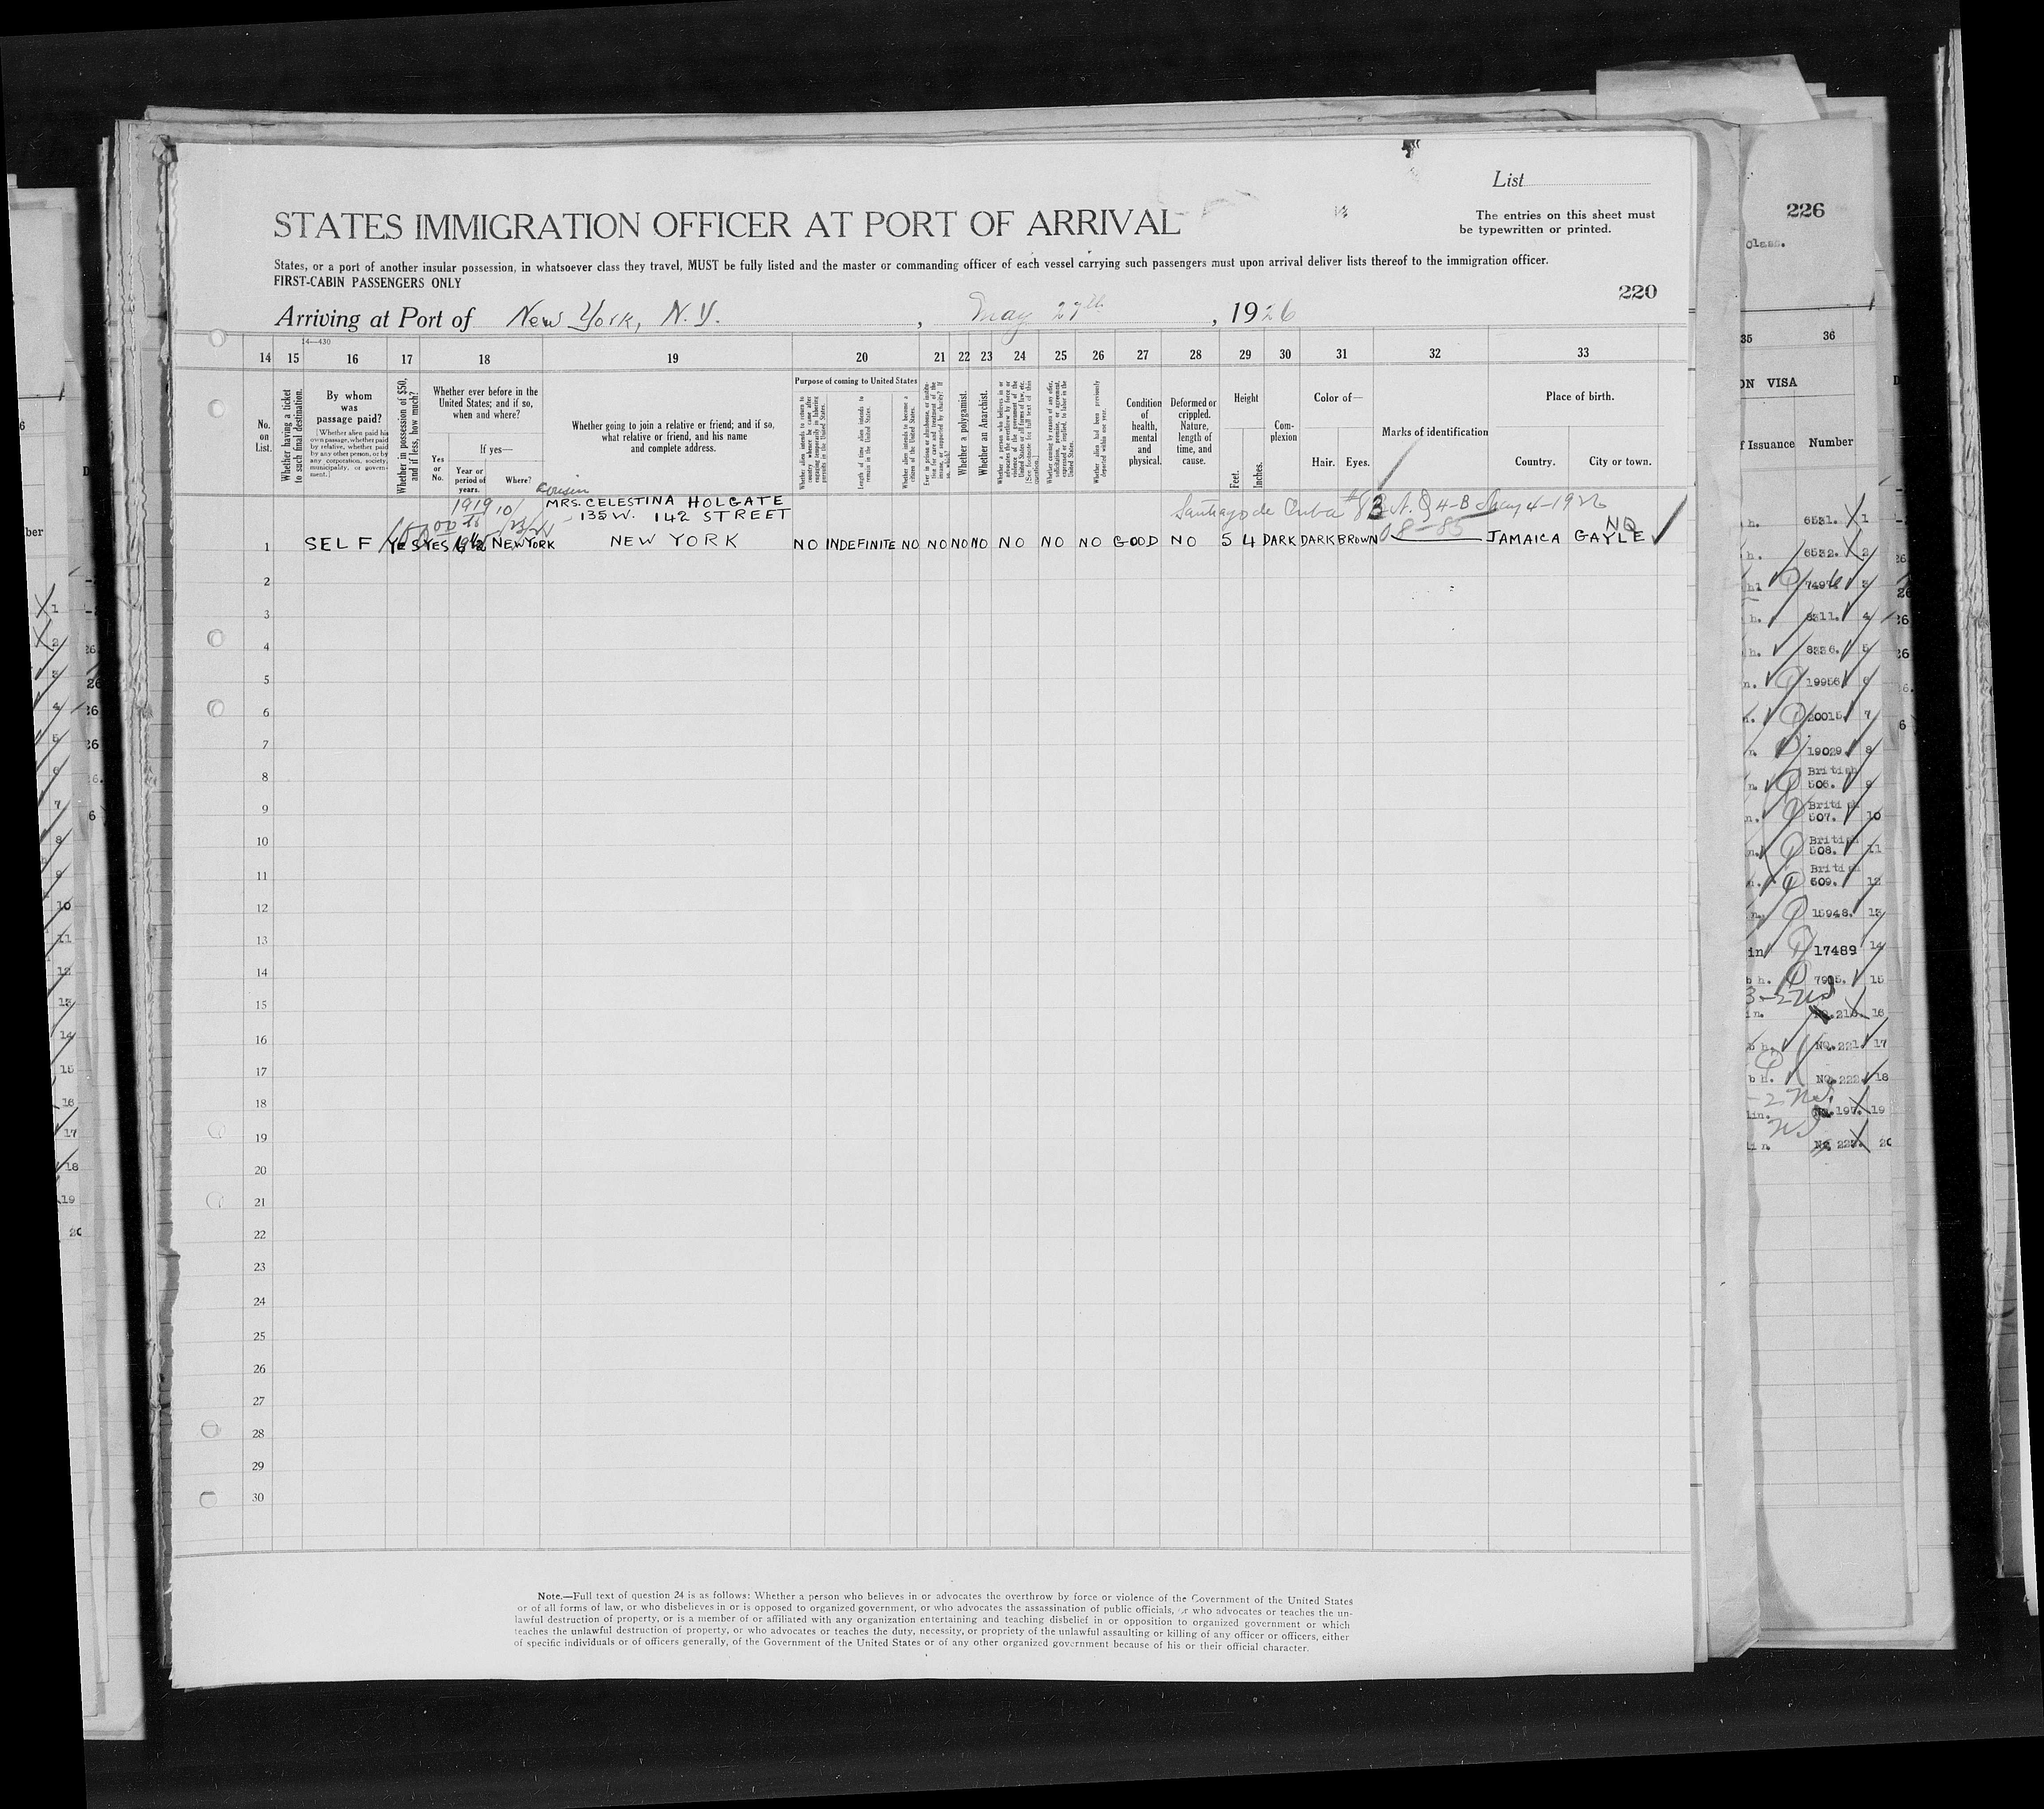 List
STATES IMMIGRATION OFFICER AT PORT OF ARRIVAL
The entries on this sheet must
be typewritten or printed.
States, or a port of another insular possession, in whatsoever class they travel, MUST be fully listed and the master or commanding officer of each vessel carrying such passengers must upon arrival deliver lists thereof to the immigration officer.
FIRST-CABIN PASSENGERS ONLY
220
Arriving at Port of New York, N.Y. , May 27th , 1926
14—430
14 15 16 17 18 19 20 21 22 23 24 25 26 27 28 29 30 31 32 33
No. on List.
Whether having a ticket to such final destination.
By whom was passage paid?
[Whether alien paid his own passage, whether paid by relative, whether paid by any other person, or by any corporation, society, municipality, or government.]
Whether in possession of $50, and if less, how much?
Whether ever before in the United States; and if so, when and where?
Yes or No.
If yes—
Year or period of years.
Where?
Whether going to join a relative or friend; and if so, what relative or friend, and his name and complete address.
Purpose of coming to United States
Whether alien intends to return to country whence he came after engaging temporarily in laboring pursuits in the United States.
Length of time alien intends to remain in the United States.
Whether alien intends to become a citizen of the United States.
Whether a polygamist.
Whether an Anarchist.
Whether alien had been previously deported within one year.
Condition of health, mental and physical.
Deformed or crippled. Nature, length of time, and cause.
Height
Feet. Inches.
Complexion
Color of—
Hair. Eyes.
Marks of identification
Place of birth.
Country. City or town.
cousin
1919
MRS. CELESTINA HOLGATE
135 W. 142 STREET
Santiago de Cuba
May 4-1926
NQ
1 SELF YES YES NEW YORK NEW YORK NO INDEFINITE NO NO NO NO NO NO NO GOOD NO 5 4 DARK DARK BROWN JAMAICA GAYLE
2
3
4
5
6
7
8
9
10
11
12
13
14
15
16
17
18
19
20
21
22
23
24
25
26
27
28
29
30
Note.—Full text of question 24 is as follows: Whether a person who believes in or advocates the overthrow by force or violence of the Government of the United States
or of all forms of law, or who disbelieves in or is opposed to organized government, or who advocates the assassination of public officials, or who advocates or teaches the un-
lawful destruction of property, or is a member of or affiliated with any organization entertaining and teaching disbelief in or opposition to organized government or which
teaches the unlawful destruction of property, or who advocates or teaches the duty, necessity, or propriety of the unlawful assaulting or killing of any officer or officers, either
of specific individuals or of officers generally, of the Government of the United States or of any other organized government because of his or their official character.
226
Class.
35 36
ON VISA
f Issuance Number
6531. 1
6532. 2
8311. 4
8336. 5
19956 6
20015. 7
19029. 8
British
506. 9
British
507. 10
British
508. 11
British
509. 12
15948. 13
17489 14
15
16
No.221. 17
No.222. 18
19